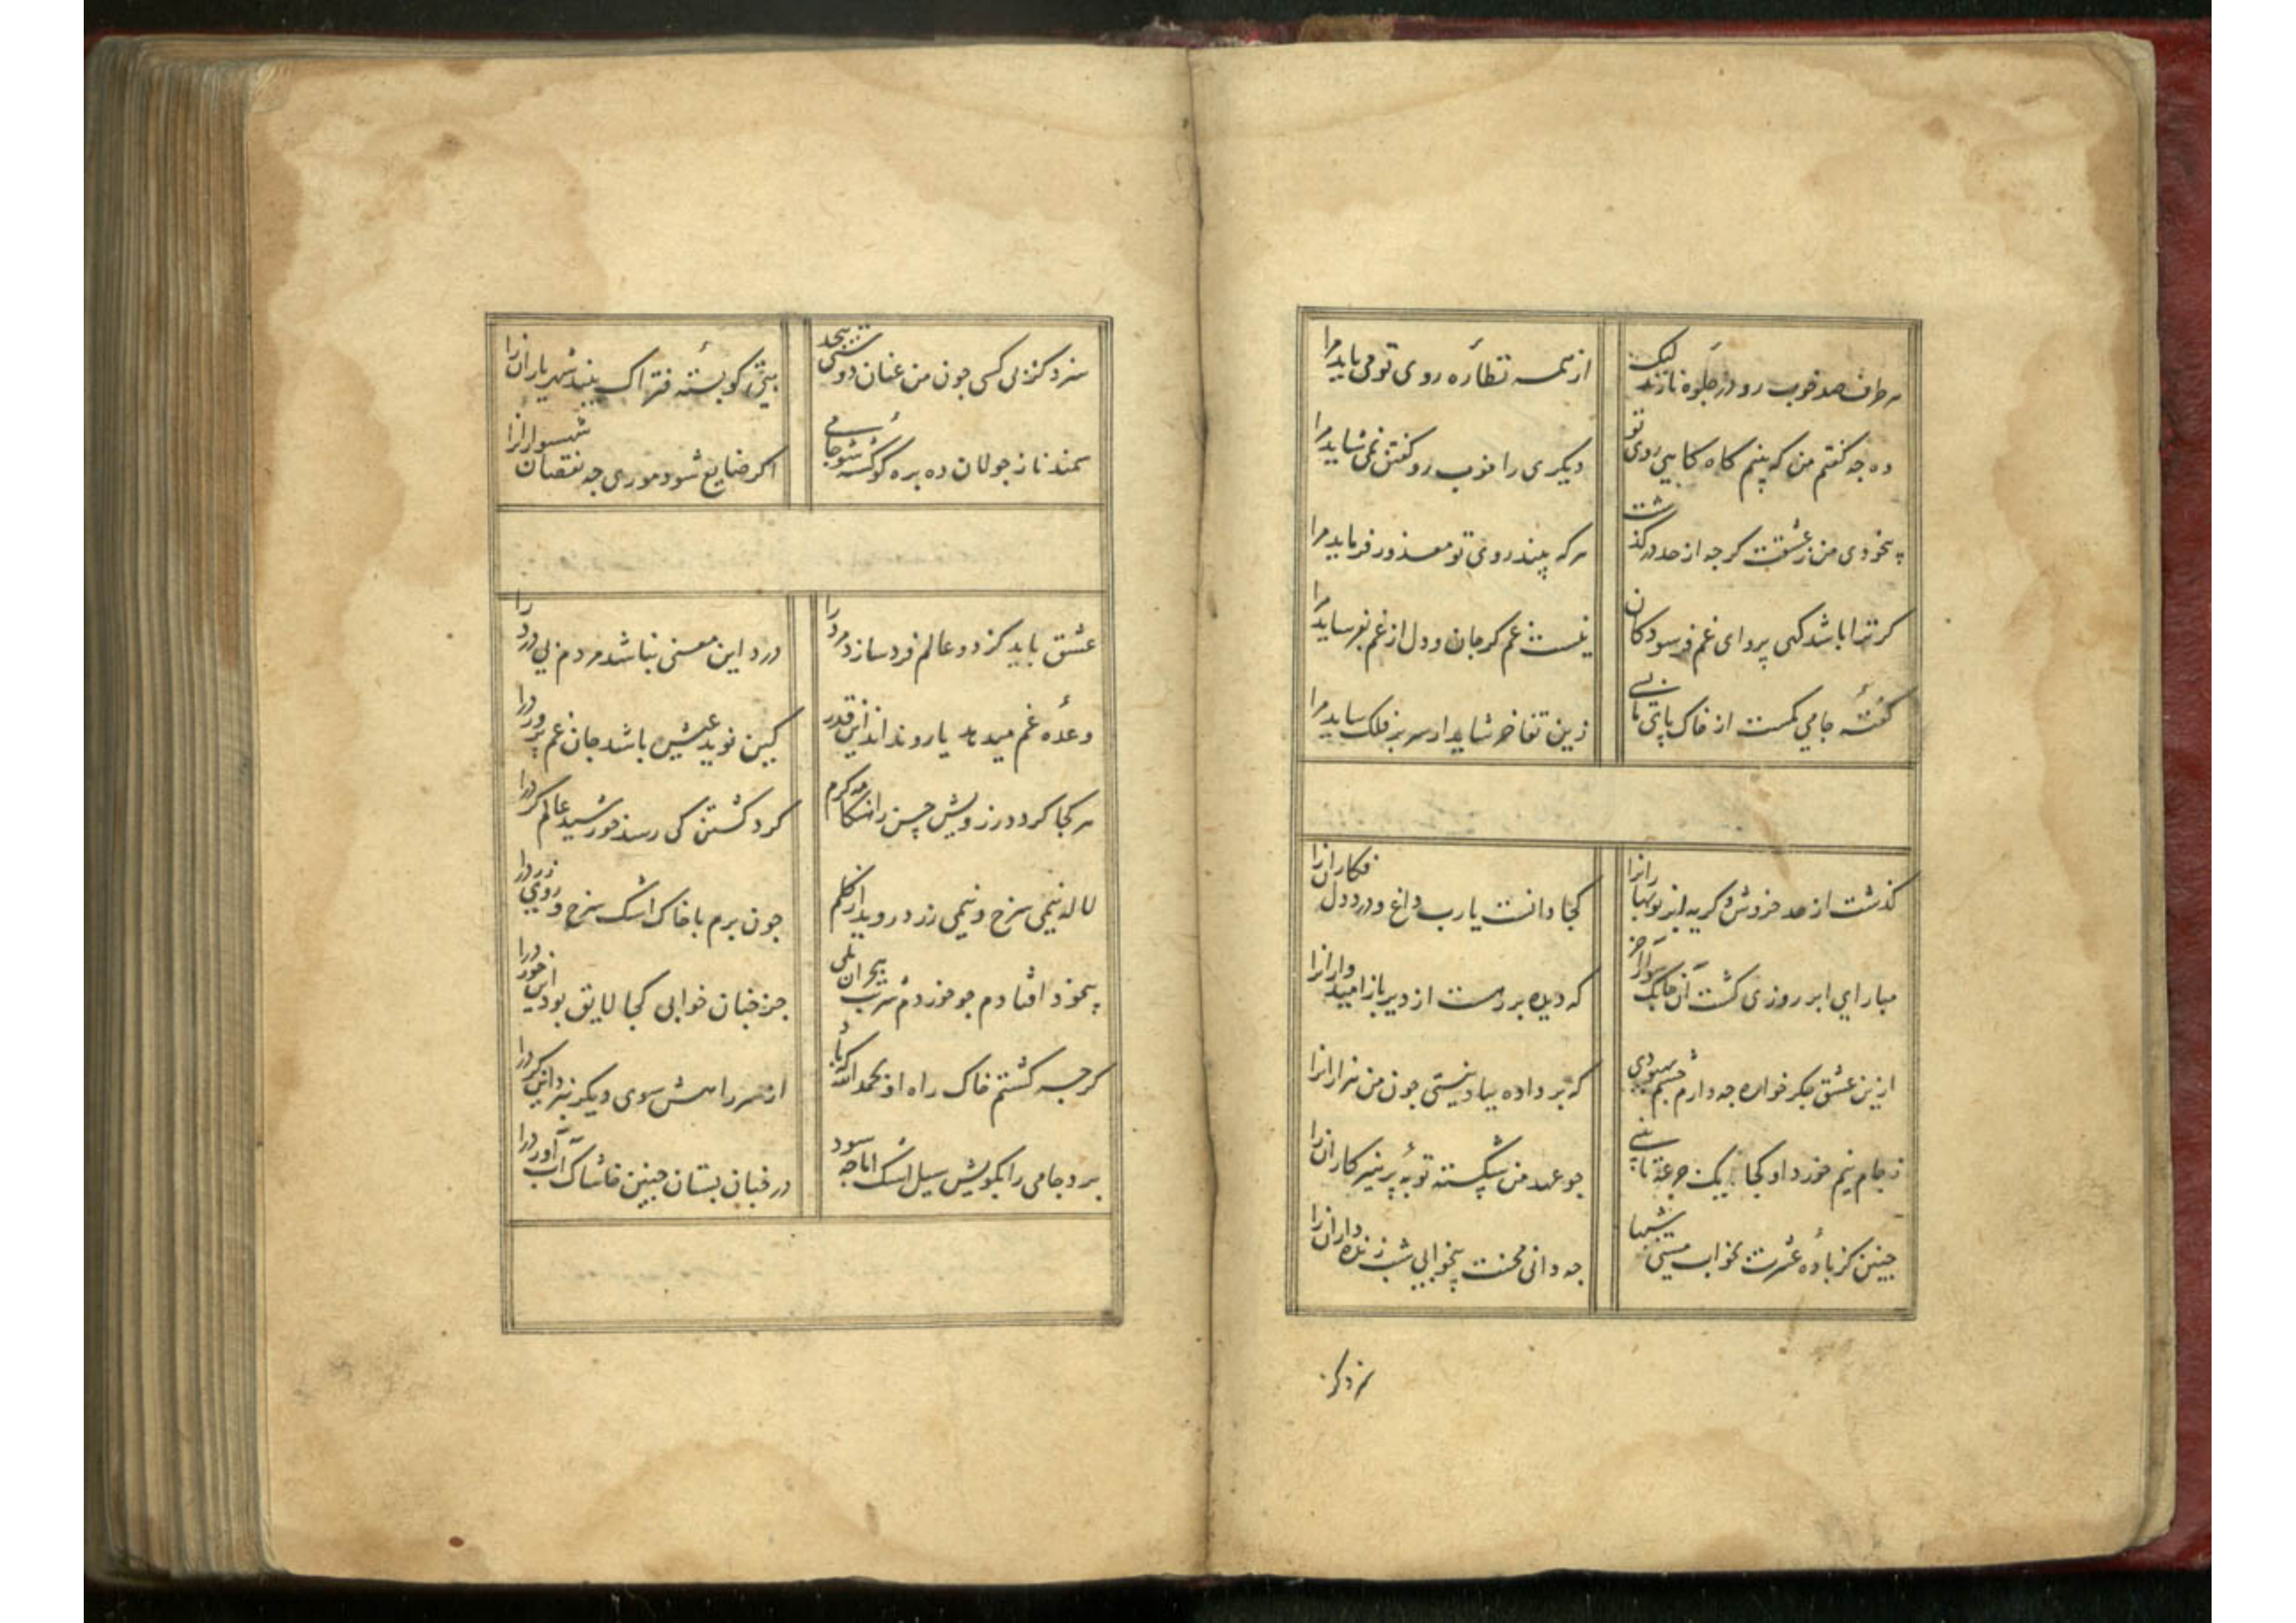 هر طرف صد خوب رو در جلوه نازند لیک
از همه نظاره روی تو می باید مرا
ده چه گفتم من که بینم گاه گاهی روی تو
دیگری را خوب رو گفتن نمی شاید مرا
بیخودی من ز عشقت گرچه از حد درگذشت
هرکه بیند روی تو معذور فرماید مرا
گر ترا باشد گهی پروای غم فرسودگان
نیست غم گر جان و دل از غم بفرساید مرا
گفته جامی کمست از خاک پای ما بسی
زین تفاخر شاید ار سر بر فلک ساید مرا
گذشت از حد خروش و گریه ابر نوبهارانرا
کجا دانست یارب داغ و درد دل فکارانرا
مبار ای ابر روزی کشت آن چابک سوار آخر
که دیده بر رهست از دیر باز امیدوارانرا
ازین عشق جگر خواره چه دارم چشم بهبودی
که بر داده بباد نیستی چون من هزارانرا
ز جام نیم خورد او کجا یک جرعه تا بینی
چو عهد من شکسته توبه پرهیزکارانرا
چنین کز باده عشرت بخواب مستی شبها
چه دانی محنت بیخوابی شب زنده دارانرا
سزد کز
سزد کز بی کسی چون من عنان دوستی پیچد
بتی کو بسته فتراک بیند شهریارانرا
سمند ناز جولان ده بره گو کشته شو جامی
اگر ضایع شود موری چه نقصان شهسوارانرا
عشق باید کز دو عالم فرد سازد مرد را
درد این معنی نباشد مردم بی درد را
وعده غم میدهد یار و نداند این قدر
کین نوید عیش باشد جان غم پرورد را
هر کجا گردد ز رویش حسن را هنگامه گرم
گرد گشتن کی رسد خورشید عالم گرد را
لاله نیمی سرخ و نیمی زرد روید از گلم
چون برم با خاک اشک سرخ و روی زرد را
بیخود افتادم چو خوردم شربت هجران بلی
جز چنان خوابی کجا لایق بود این خورد را
گرچه گشتم خاک راه او بحمد الله که باد
از سر راهش سوی دیگر نبرد این گرد را
برد جامی را بکویش سیل اشک اما چه سود
در خیابان بستان چنین خاشاک آب آورد را